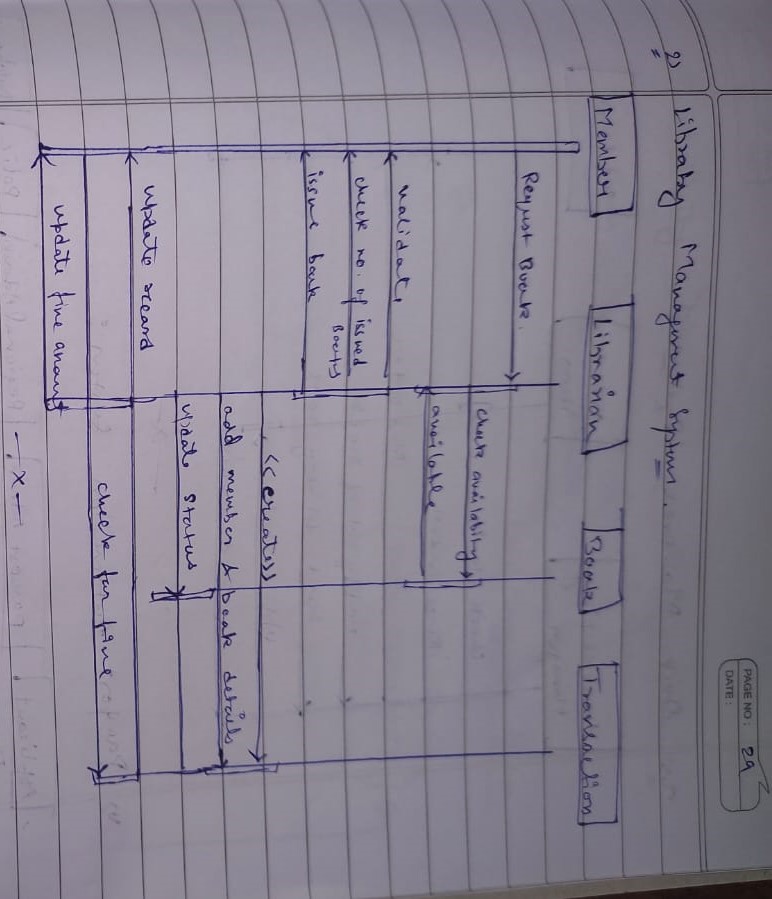 PAGE NO: 29
DATE:
2) Library Management System.
Member
Librarian
Book
Transaction
Request Book.
check availability
available
validate
check no. of issued
Books
issue book
<<create>>
add member & book details
update status
update record
check for fine
update fine amount
- x -